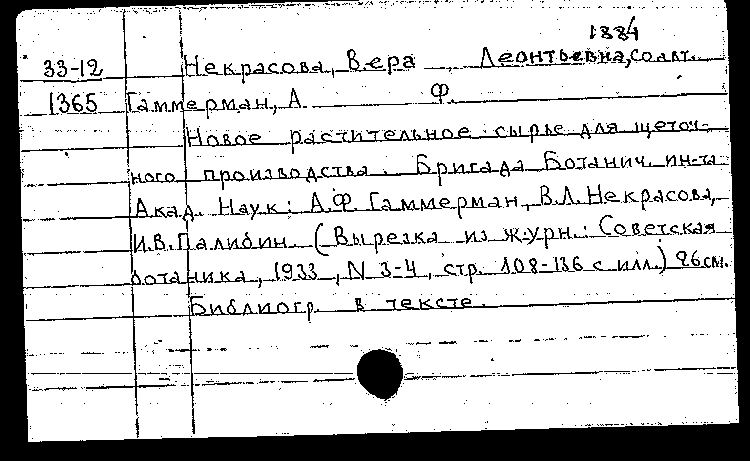 1884
33-12 Некрасова, Вера Леонтьевна, соавт.
1365 Гаммерман, А. Ф.
Новое растительное сырье для щеточ-
ного производства. Бригада Ботанич. ин-та
Акад. Наук: А.Ф. Гаммерман, В.Л. Некрасова,
И.В. Палибин. (Вырезка из журн.: Советская
ботаника, 1933, N 3-4, стр. 108-136 с илл.) 26 см.
Библиогр. в тексте.